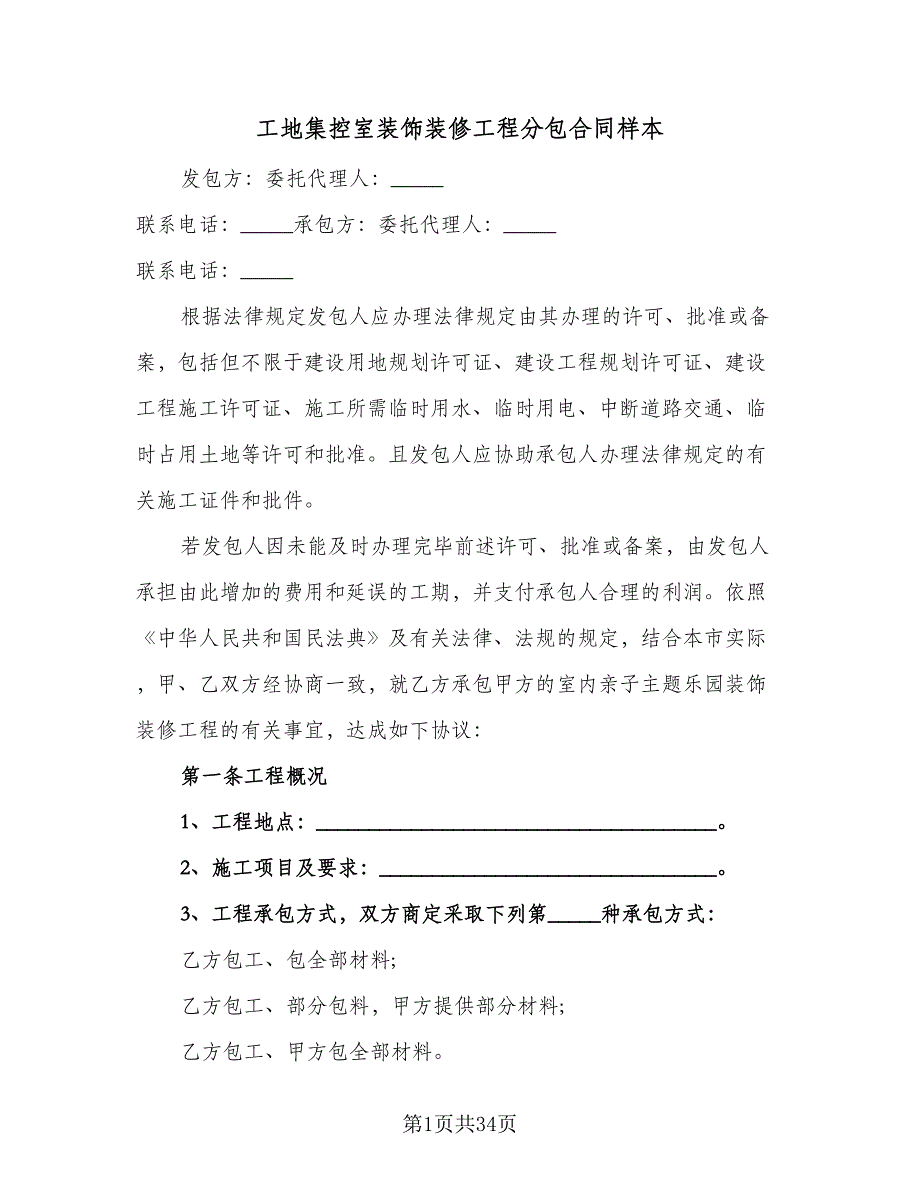 工地集控室装饰装修工程分包合同样本
发包方：委托代理人：_____
联系电话：_____承包方：委托代理人：_____
联系电话：_____
根据法律规定发包人应办理法律规定由其办理的许可、批准或备
案，包括但不限于建设用地规划许可证、建设工程规划许可证、建设
工程施工许可证、施工所需临时用水、临时用电、中断道路交通、临
时占用土地等许可和批准。且发包人应协助承包人办理法律规定的有
关施工证件和批件。
若发包人因未能及时办理完毕前述许可、批准或备案，由发包人
承担由此增加的费用和延误的工期，并支付承包人合理的利润。依照
《中华人民共和国民法典》及有关法律、法规的规定，结合本市实际
，甲、乙双方经协商一致，就乙方承包甲方的室内亲子主题乐园装饰
装修工程的有关事宜，达成如下协议：
第一条工程概况
1、工程地点：______________________________________。
2、施工项目及要求：________________________________。
3、工程承包方式，双方商定采取下列第_____种承包方式：
乙方包工、包全部材料;
乙方包工、部分包料，甲方提供部分材料;
乙方包工、甲方包全部材料。
第1页共34页